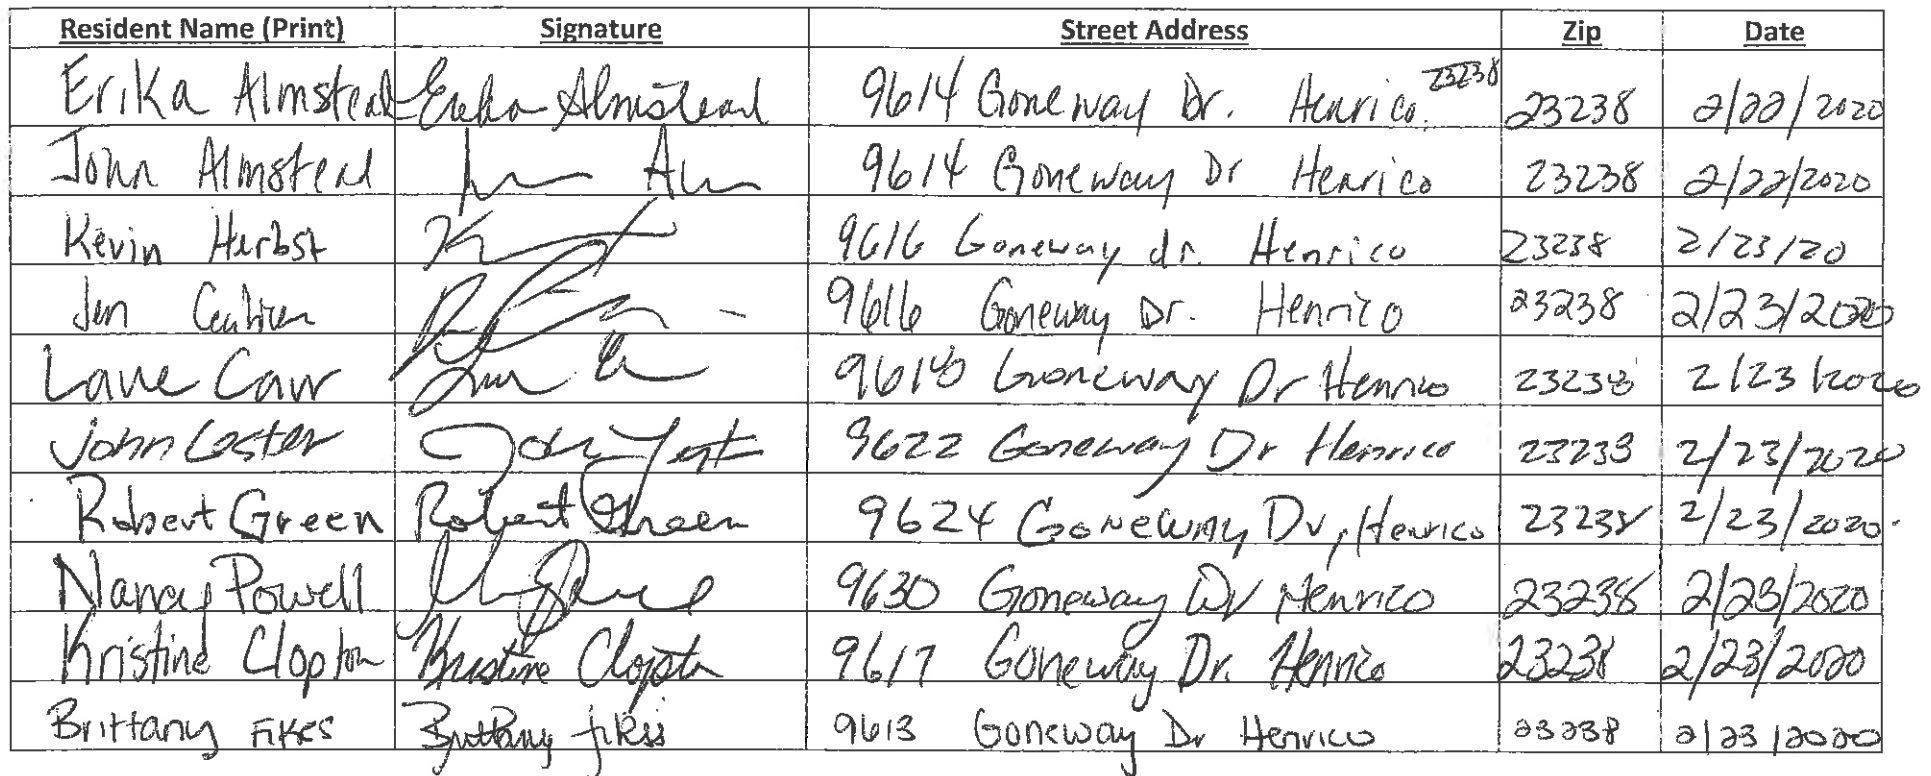 Resident Name (Print) Signature Street Address Zip Date
Erika Almstead Erika Almstead 9614 Goneway Dr. Henrico. 23238 23238 2/22/2020
John Almstead 9614 Goneway Dr Henrico 23238 2/22/2020
Kevin Herbst 9616 Goneway dr. Henrico 23238 2/23/20
Jen 9616 Goneway Dr. Henrico 23238 2/23/2020
Lane Carr 9618 Goneway Dr Henrico 23238 2/23/2020
John Lester John Lest 9622 Goneway Dr Henrico 23233 2/23/2020
Robert Green Robert Green 9624 Goneway Dr, Henrico 23238 2/23/2020
Nancy Powell 9630 Goneway Dr Henrico 23238 2/23/2020
Kristine Clopton Kristine Clopton 9617 Goneway Dr. Henrico 23238 2/23/2020
Brittany Fikes Brittany Fikes 9613 Goneway Dr Henrico 23238 2/23/2020